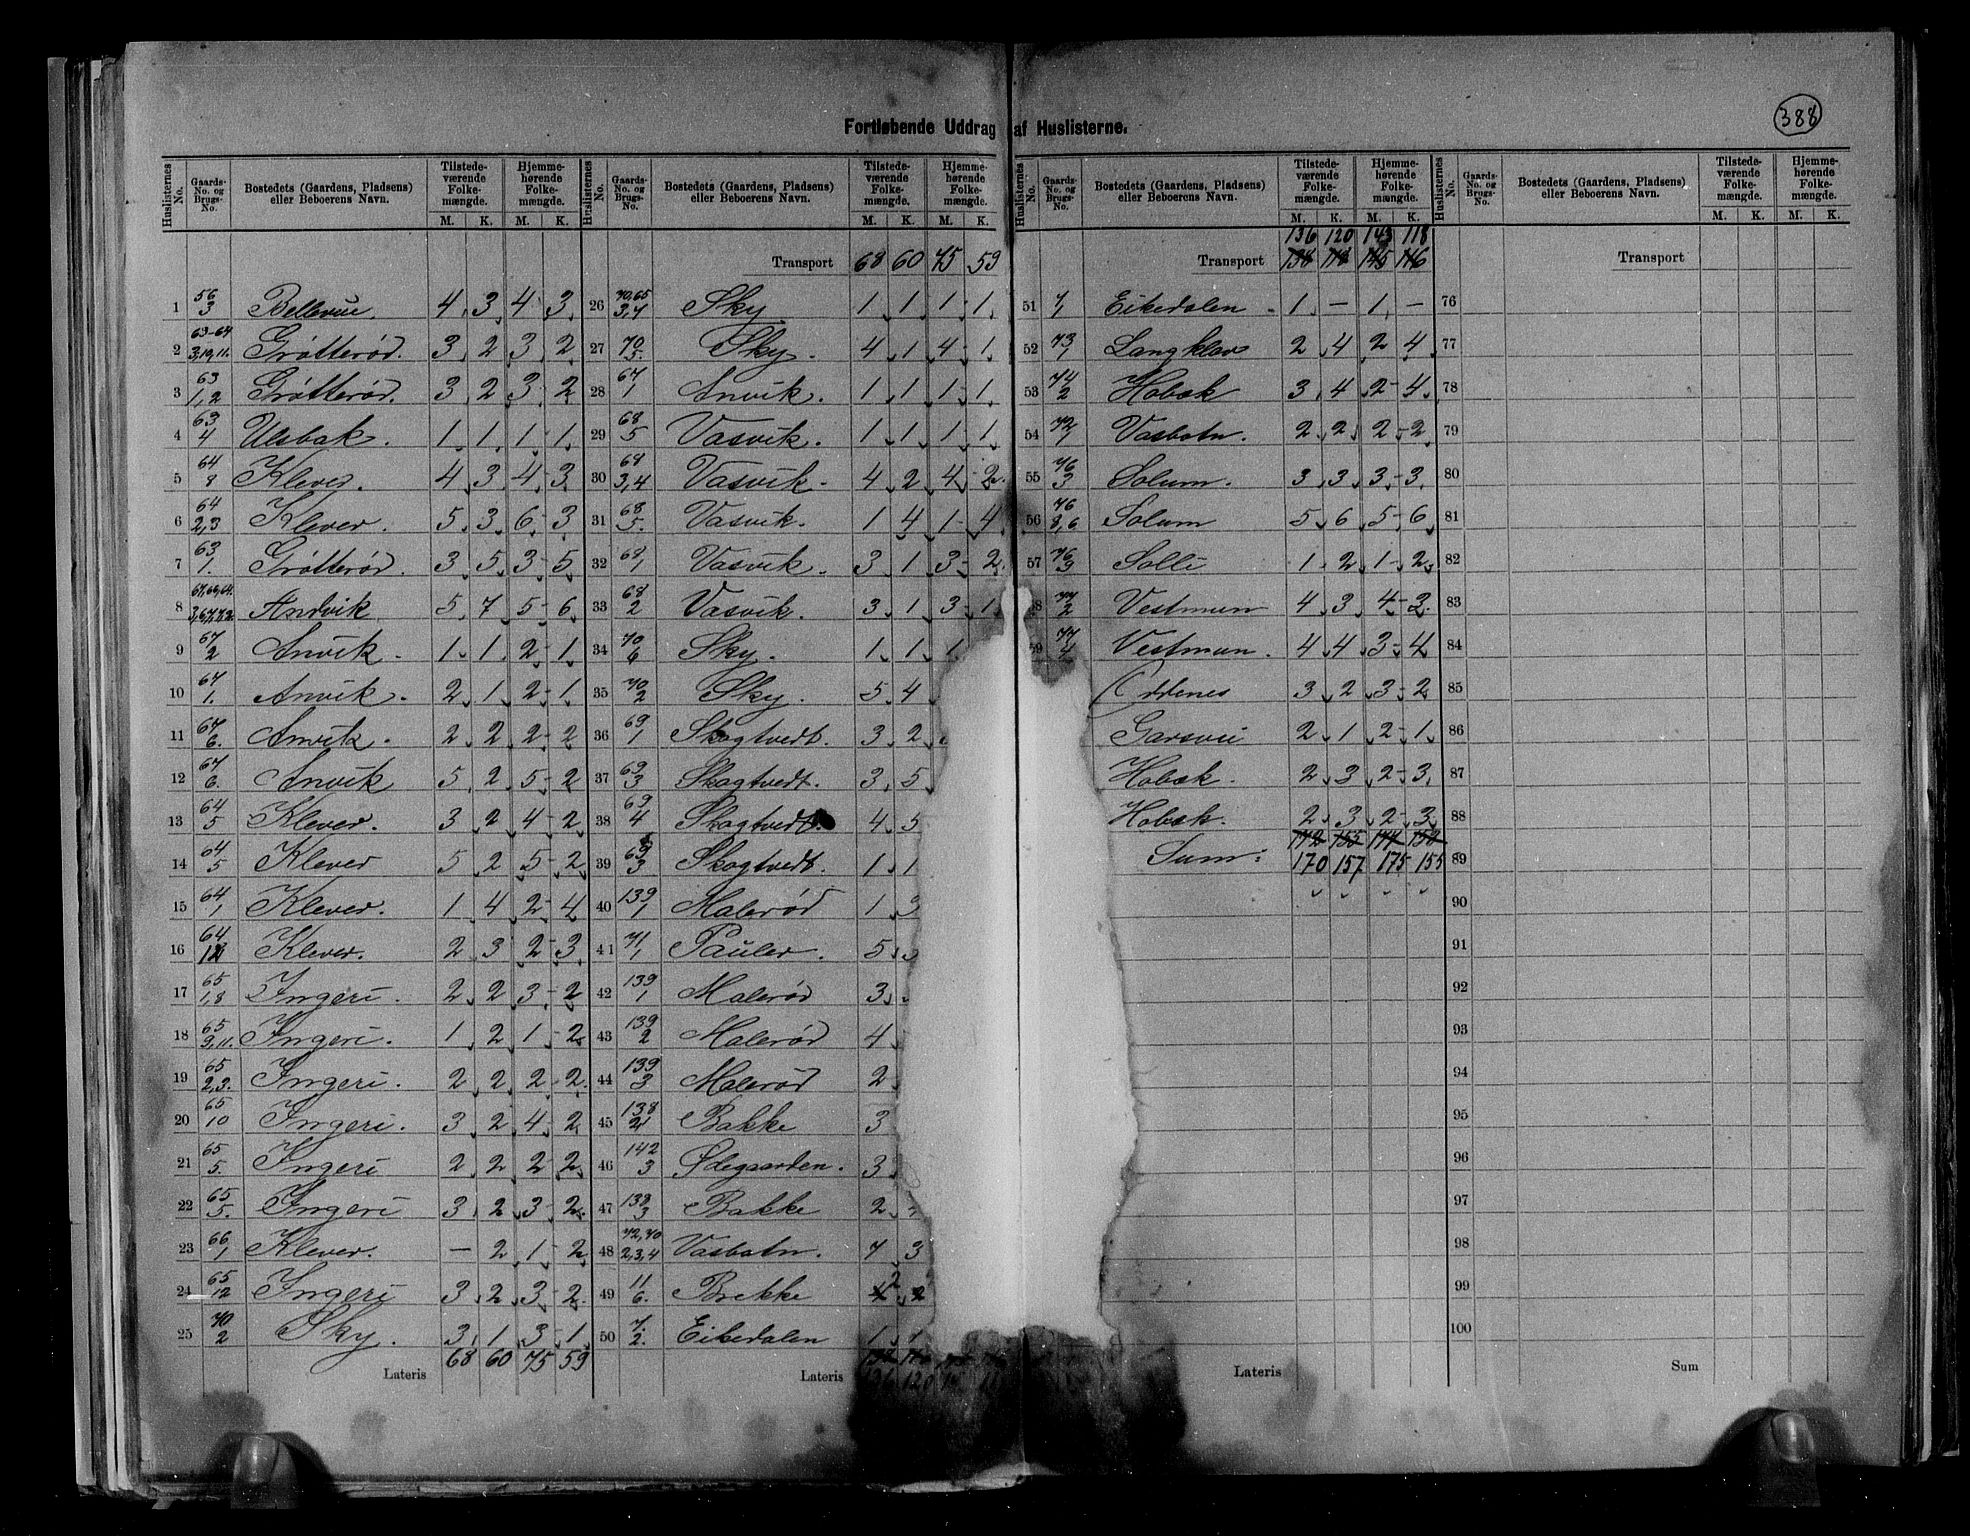 388
Fortløbende Uddrag af Huslisterne.
Huslisternes No. Gaards-No. og Brugs-No. Bostedets (Gaardens, Pladsens) eller Beboerens Navn. Tilstedeværende Folkemængde. M. K. Hjemmehørende Folkemængde. M. K.
1 56/3 Bellevue. 4 3 4 3
2 63-64/3,10,11. Grøtterød. 3 2 3 2
3 63/1,2 Grøtterød. 3 2 3 2
4 63/4 Ulsbak. 1 1 1 1
5 64/8 Klever. 4 3 4 3
6 64/2,3 Klever. 5 3 6 3
7 63/1. Grøtterød. 3 5 3 5
8 Andvik 5 7 5 6
9 67/2 Anvik. 1 1 2 1
10 67/1. Anvik. 2 1 2 1
11 67/6. Anvik. 2 2 2 2
12 67/6. Anvik 5 2 5 2
13 64/5 Klever. 3 2 4 2
14 64/5 Klever 5 2 5 2
15 64/1 Klever. 1 4 2 4
16 64/12 Klever. 2 3 2 3
17 65/1,8 Ingeri. 2 2 3 2
18 65/9,11. Ingeri. 1 2 1 2
19 65/2,3. Ingeri. 2 2 2 2
20 65/10 Ingeri. 3 2 4 2
21 65/5. Ingeri 2 2 2 2
22 65/5. Ingeri 3 2 3 2
23 66/1 Klever. – 2 1 2
24 65/12 Ingeri 3 2 3 2
25 70/2 Sky. 3 1 3 1
Lateris 68 60 75 59
Huslisternes No. Gaards-No. og Brugs-No. Bostedets (Gaardens, Pladsens) eller Beboerens Navn. Tilstedeværende Folkemængde. M. K. Hjemmehørende Folkemængde. M. K.
Transport 68 60 75 59
26 70,65/3,4 Sky 1 1 1 1
27 70/5. Sky. 4 1 4 1
28 67/1 Anvik. 1 1 1 1
29 68/5 Vasvik. 1 1 1 1
30 68/3,4 Vasvik. 4 2 4 2
31 68/5. Vasvik. 1 4 1 4
32 68/1 Vasvik. 3 1 3 2
33 68/2 Vasvik. 3 1 3 1
34 70/6 Sky. 1 1 1
35 70/2 Sky. 5 4
36 69/1 Skogtvedt. 3 2
37 69/3 Skogtvedt. 3 5
38 69/4 Skogtvedt. 4 5
39 69/3 Skogtvedt. 1 1
40 139/1 Malerød 1 3
41 71/1 Pauler. 5
42 139/1 Malerød 3
43 139/2 Malerød 4
44 139/3 Malerød 2
45 138/2 Bakke 3
46 142/3 Ødegaarden. 3
47 138/3 Bakke 2
48 72,70/2,3,4 Vasbotn. 7 3
49 11/6. Brekke 2
50 7./2. Eikedalen 1 1
Lateris 136 120
Huslisternes No. Gaards-No. og Brugs-No. Bostedets (Gaardens, Pladsens) eller Beboerens Navn. Tilstedeværende Folkemængde. M. K. Hjemmehørende Folkemængde. M. K.
136 120 143 118
Transport 138 118 145 116
51 7/1 Eikedalen. 1 – 1 –
52 73/1 Langklav 2 4 2 4
53 74/2 Hobæk 3 4 2 4
54 72/1 Vasbotn. 2 2 2 2
55 76/3 Solum. 3 3 3 3
56 76/8,6 Solum 5 6 5 6
57 76/3 Solli 1 2 1 2
8 77/2 Vestmun 4 3 4 3
59 77/4 Vestmun. 4 4 3 4
Oddenes 3 2 3 2
Garsvei 2 1 2 1
Hobæk. 2 3 2 3
Hobæk. 2 3 2 3
172 155 177 153
Sum: 170 157 175 155
Lateris
Huslisternes No. Gaards-No. og Brugs-No. Bostedets (Gaardens, Pladsens) eller Beboerens Navn. Tilstedeværende Folkemængde. M. K. Hjemmehørende Folkemængde. M. K.
Transport
76
77
78
79
80
81
82
83
84
85
86
87
88
89
90
91
92
93
94
95
96
97
98
99
100
Sum